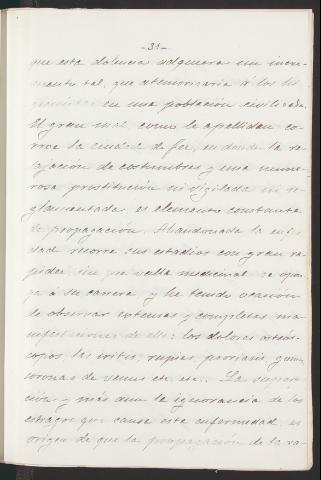 -31-
que esta dolencia adquiera un incre-
mento tal, que atemorizaria á los hi-
gienistas en una población civilizada.
El gran mal, como le apellidan, co-
rroe la ciudad de fez, en donde la re-
lajación de costumbres y una nume-
rosa prostitución ni vigilada ni re-
glamentada, es elemento constante
de propagación. Abandonada la enfer
dad recorre sus estadios con gran ra-
pidez, sin que valla medicinal se opon
ga á su carrera, y he tenido ocasión
de observar extensas y completas ma
nifestaciones de ella: los dolores osteós-
copos, las iritis, rupias, psoriasis, gomas
coronas de venus etc. etc.. La supers-
ción y más aun la ignorancia de los
estragos que causa esta enfermedad, es
origen de que la propagación de la va-